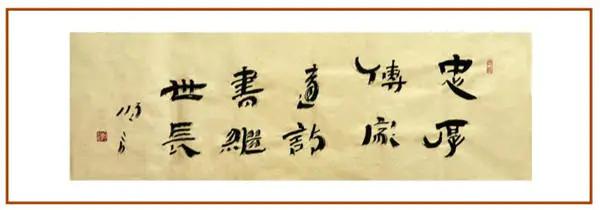 忠厚
傳家
遠詩
書繼
世長